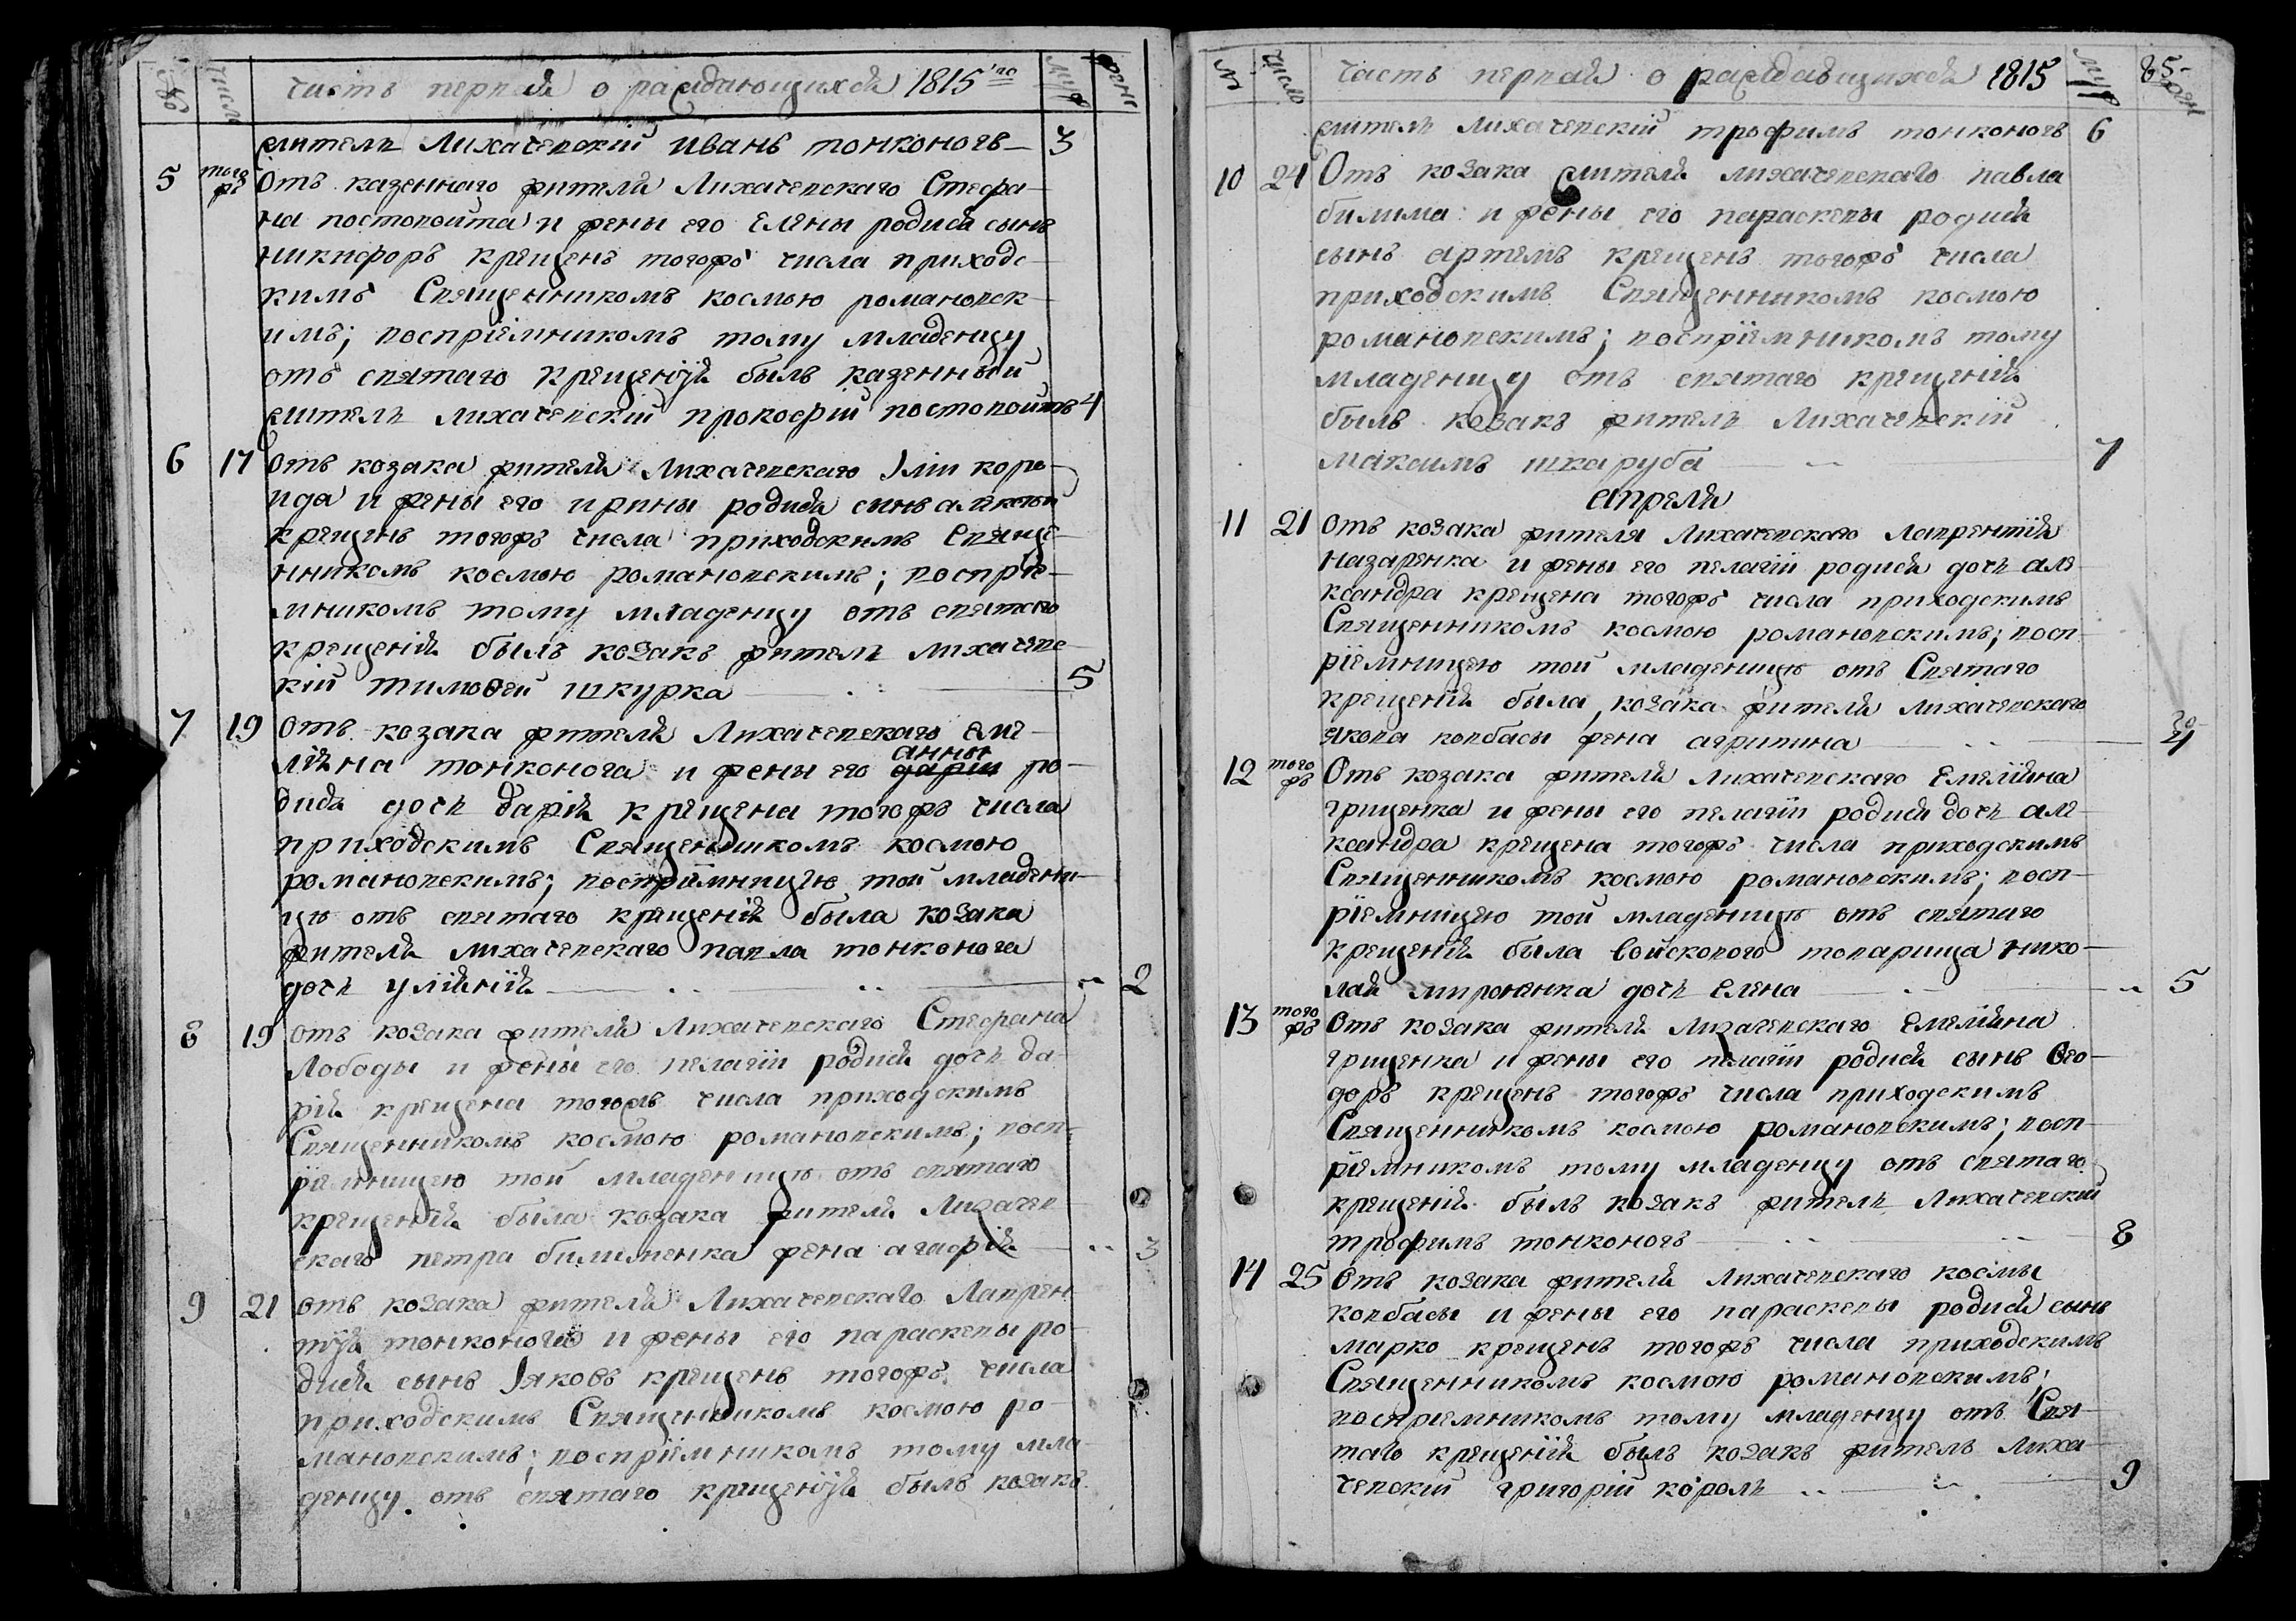 №
число
часть первая о раждающихся 1815го
муж
жен
житель Лихачевский Иванъ тонконогъ 3
5 того жъ Отъ казеннаго жителя Лихачевскаго Стефа-
на востовойта и жены его Елены родися сынъ
никифоръ крещенъ тогожъ числа приходс-
кимъ Священникомъ космою романовск-
имъ; воспріемникомъ тому младенцу
отъ святаго крещенїя былъ казенный
житель лихачевский прокофій востовойтъ 4
6 17 Отъ козака жителя Лихачевскаго Іліи коро-
и жены его ирины родися синъ алексый
крещенъ тогожъ числа приходскимъ Свяще-
нникомъ космою романовскимъ; воспріе-
мникомъ тому младенцу отъ святаго
крещенія былъ козакъ житель лихачевс-
кій тимоѳей шкурка 5
7 19 Отъ козака жителя Лихачевскаго Еме-
ліяна тонконога и жены его анны дарии ро-
дися дочь дарія крещена тогожъ числа
приходскимъ Священникомъ космою
романовскимъ; воспріемницею той младени-
це отъ святаго крещенія была козака
жителя лихачевскаго павла тонконога
дочь уліянія 2
8 19 отъ козака жителя Лихачевскаго Стефана
Лободы и жены его пелагіи родися дочь да-
рія крещена тогожъ числа приходскимъ
Священникомъ космою романовскимъ; восп-
ріемницею той младенице отъ святаго
крещенія была козака жителя Лихачев
скаго петра билименка жена агафія 3
9 21 отъ козака жителя Лихачевскаго Лаврен
тїя тонконога и жены его параскевы ро-
дися сынъ Іяковъ крещенъ тогожъ числа
приходскимъ Священникомъ космою ро-
мановскимъ; воспріемникомъ тому мла-
денцу отъ святаго крещенїя былъ козакъ
№
число
часть первая о раждающихся 1815
муж
85
жен
житель лихачевскій трофимъ тонконогъ 6
10 24 Отъ козака жителя лихачевскаго павла
билима и жены его параскевы родися
сынъ артемъ крещенъ тогожъ числа
приходскимъ Священникомъ космою
романовскимъ; воспріемникомъ тому
младенцу отъ святаго крещенія
былъ козакъ житель Лихачевскій
максимъ шкаруба 7
апреля
11 21 Отъ козака жителя Лихачевскаго Лаврентїя
Назаренка и жены его пелагіи родися дочь але
ксандра крещена тогожъ числа приходскимъ
Священникомъ космою романовскимъ; восп
ріемницею той младенице отъ Святаго
крещенія была козака жителя лихачевскаго
якова ковбасы жена агрипина 4
12 того жъ Отъ козака жителя лихачевскаго Емеліяна
грищенка и жены его пелагіи родися дочь але-
ксандра крещена тогожъ числа приходскимъ
Священникомъ космою романовскимъ; восп-
ріемницею той младенице отъ святаго
крещенія была войскового товарища нико-
лая миронѣнка дочь елена 5
13 того жъ Отъ козака жителя Лихачевскаго Емеліяна
грищенка и жены его пелагіи родися сынъ Ѳео-
доръ крещенъ тогожъ числа приходскимъ
Священникомъ космою романовскимъ; восп-
ріемникомъ тому младенцу отъ святаго
крещенія былъ козакъ житель Лихачевский
трофимъ тонконогъ 8
14 25 Отъ козака жителя лихачевскаго космы
ковбасы и жены его параскевы родися сынъ
марко крещенъ тогожъ числа приходскимъ
Священникомъ космою романовскимъ;
воспріемникомъ тому младенцу отъ Свя-
таго крещенїя былъ козакъ житель лиха-
чевский григорій король 9